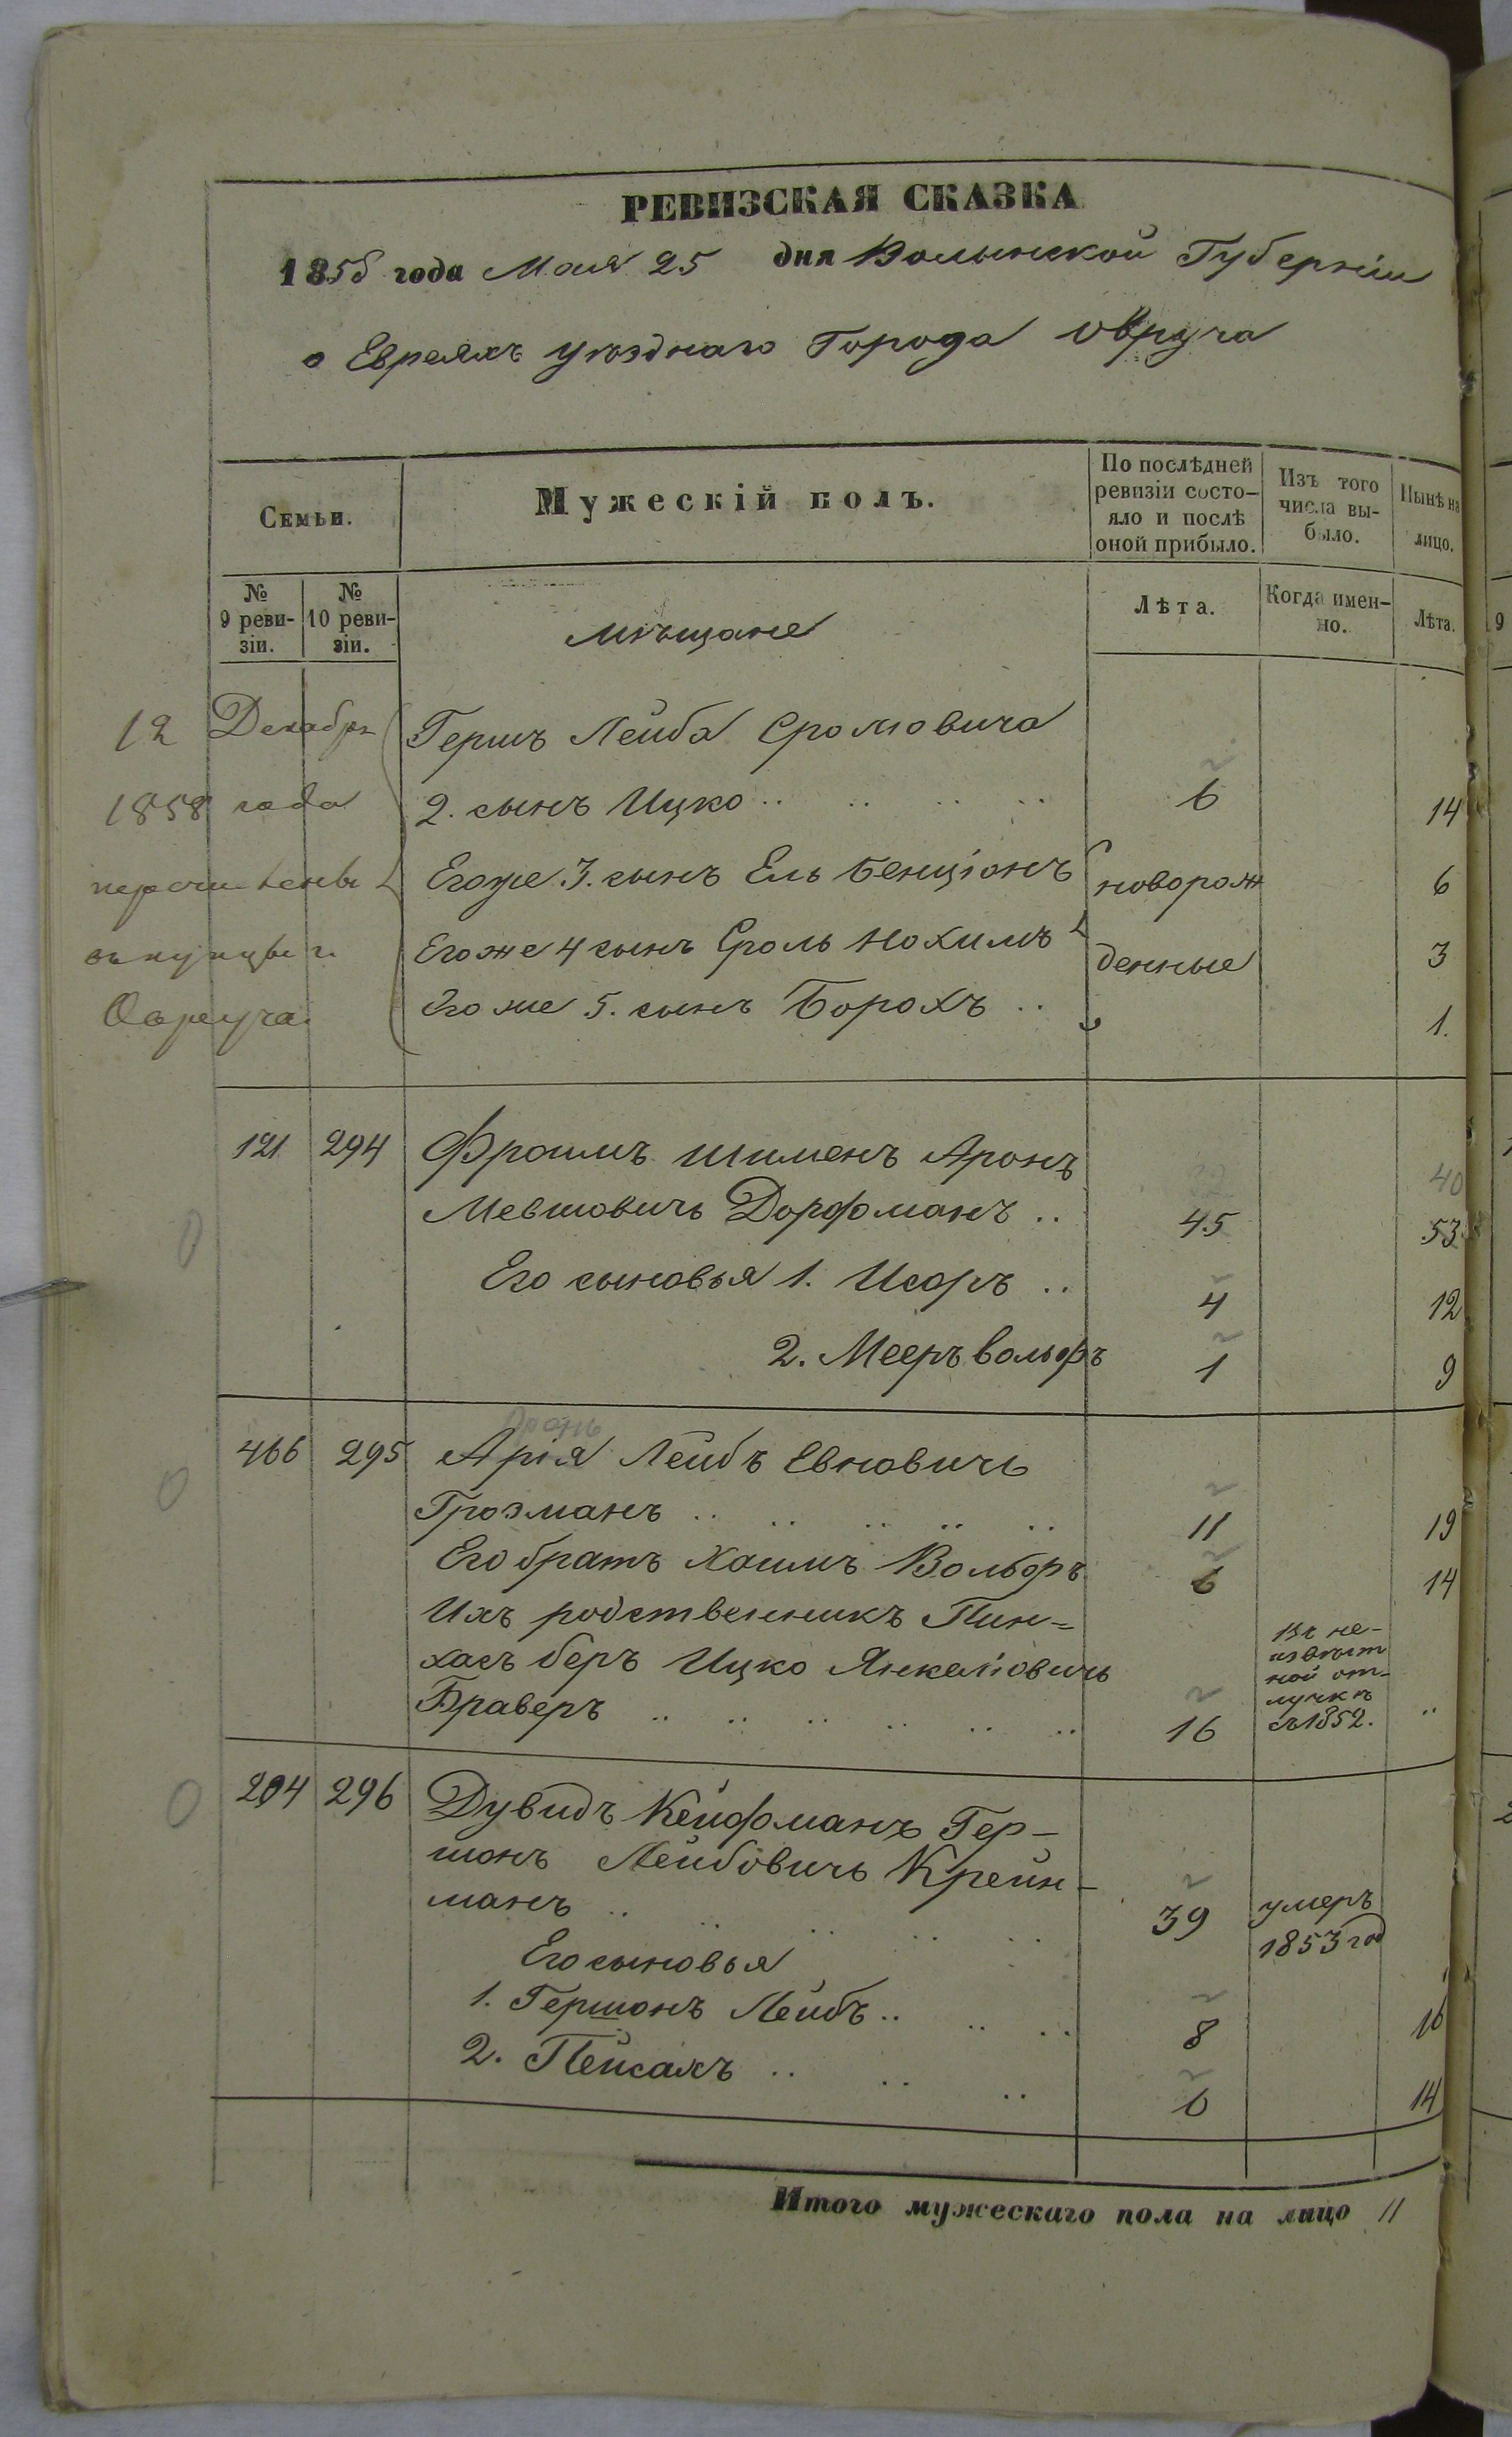 РЕВИЗСКАЯ СКАЗКА
1858 года Мая 25 дня Волынской Губерніи
о Евреяхъ уѣзднаго Города Овруча
Семьи.
Мужескій полъ.
По послѣдней ревизіи состо-яло и послѣ оной прибыло.
Изъ того числа вы-было.
Нынѣ на лицо.
№ 9 реви-зіи.
№ 10 реви-зіи.
мѣщане
Лѣта.
Когда имен-но.
Лѣта.
12 Декабря
1858 года
перечислены
въ купцы г.
Овруча.
Гершъ Лейба Сролювича
2. сынъ Ицко .. .. .. .. 6 14
Егоже 3. сынъ Ель Бенціонъ новорож 6
Егоже 4 сынъ Сроль Нохимъ денные 3
Егоже 5. сынъ Борохъ .. 1.
121 294 Фроимъ Шименъ Аронъ 40
Мевшовичъ Дорфманъ .. 45 53
Его сыновья 1. Исоръ .. 4 12
2. Мееръ Вольфъ 1 9
466 295 Арія Лейбъ Евновичъ
Грозманъ .. .. .. .. .. 11 19
Его братъ Хаимъ Вольфъ 6 14
Ихъ родственникъ Пин=
хасъ беръ Ицко Янкеліовичь
Браверъ .. .. .. .. .. .. 16 Въ не-извѣст ной от-лучкѣ съ 1852. ..
204 296 Дувидъ Кейфманъ Гер-
шонъ Лейбовичъ Крейн-
манъ .. .. .. .. .. 39 умеръ 1853 год
Его сыновья
1. Гершонъ Лейбъ .. .. .. 8 16
2. Пейсахъ .. .. .. 6 14
Итого мужескаго пола на лицо 11